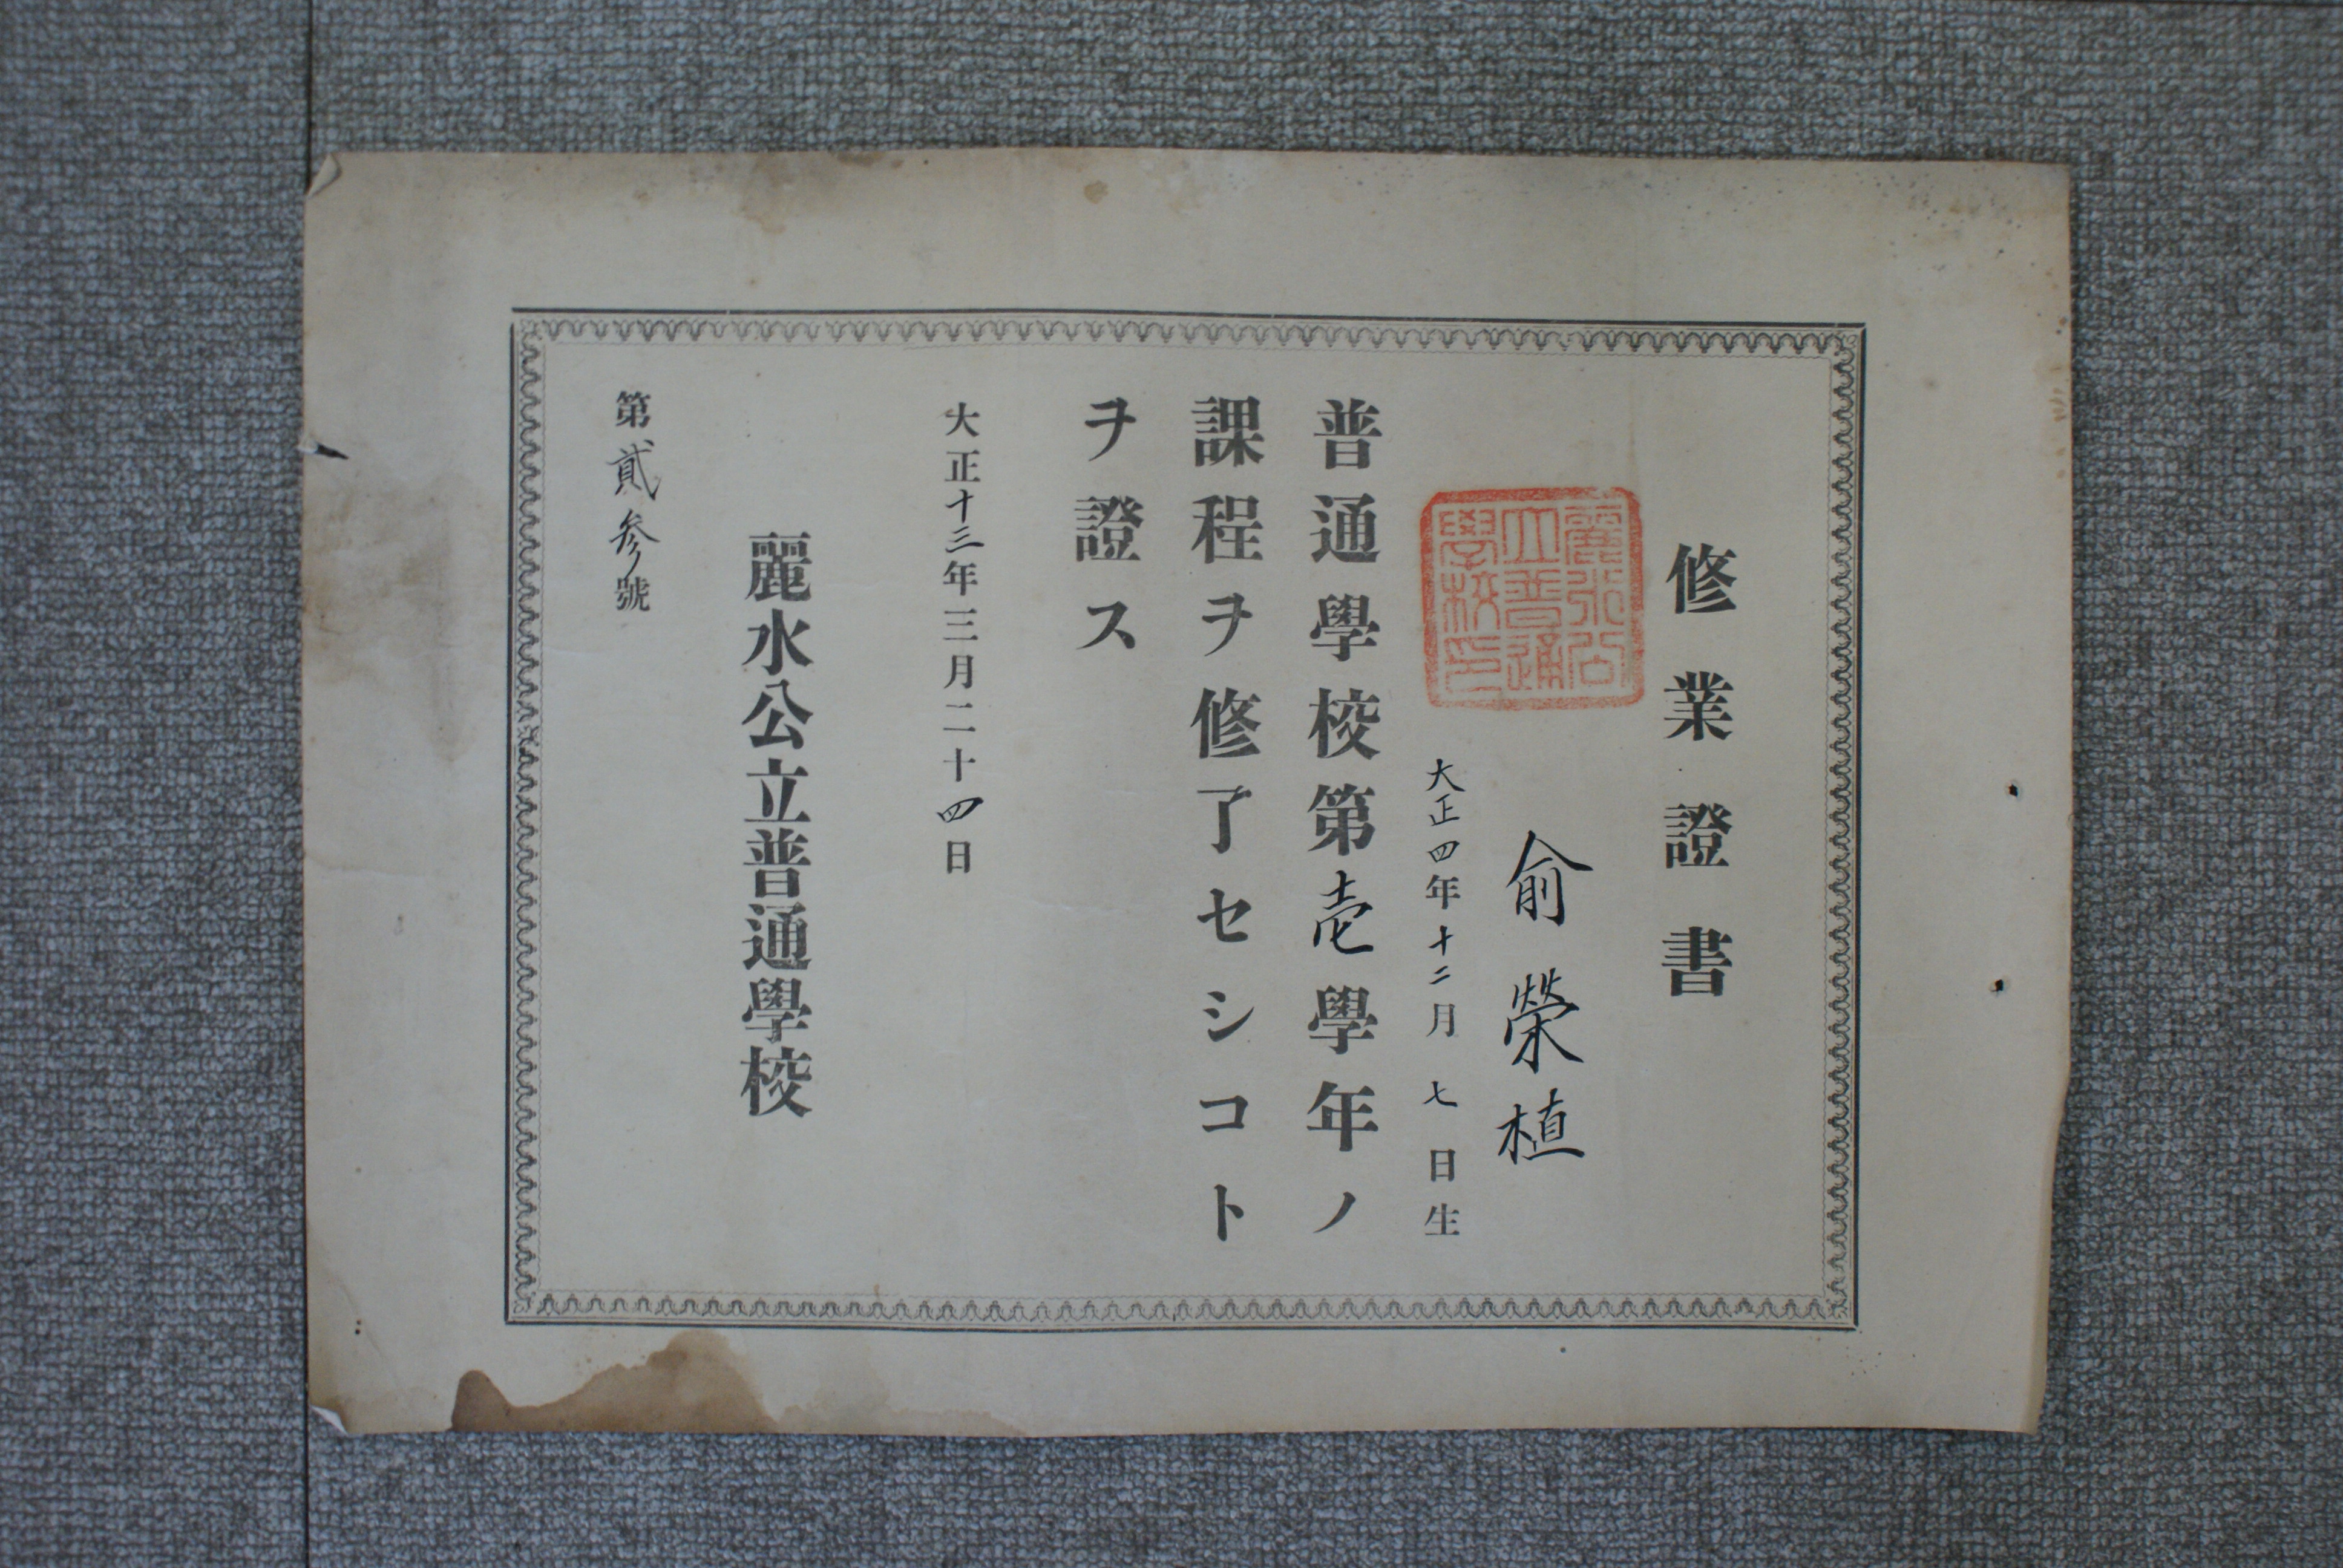 修業證書
麗水公
立普通
學校印
俞榮植
大正四年十二月七日生
普通學校第壱學年ノ
課程ヲ修了セシコト
ヲ證ス
大正十三年三月二十四日
麗水公立普通學校
第貳参號